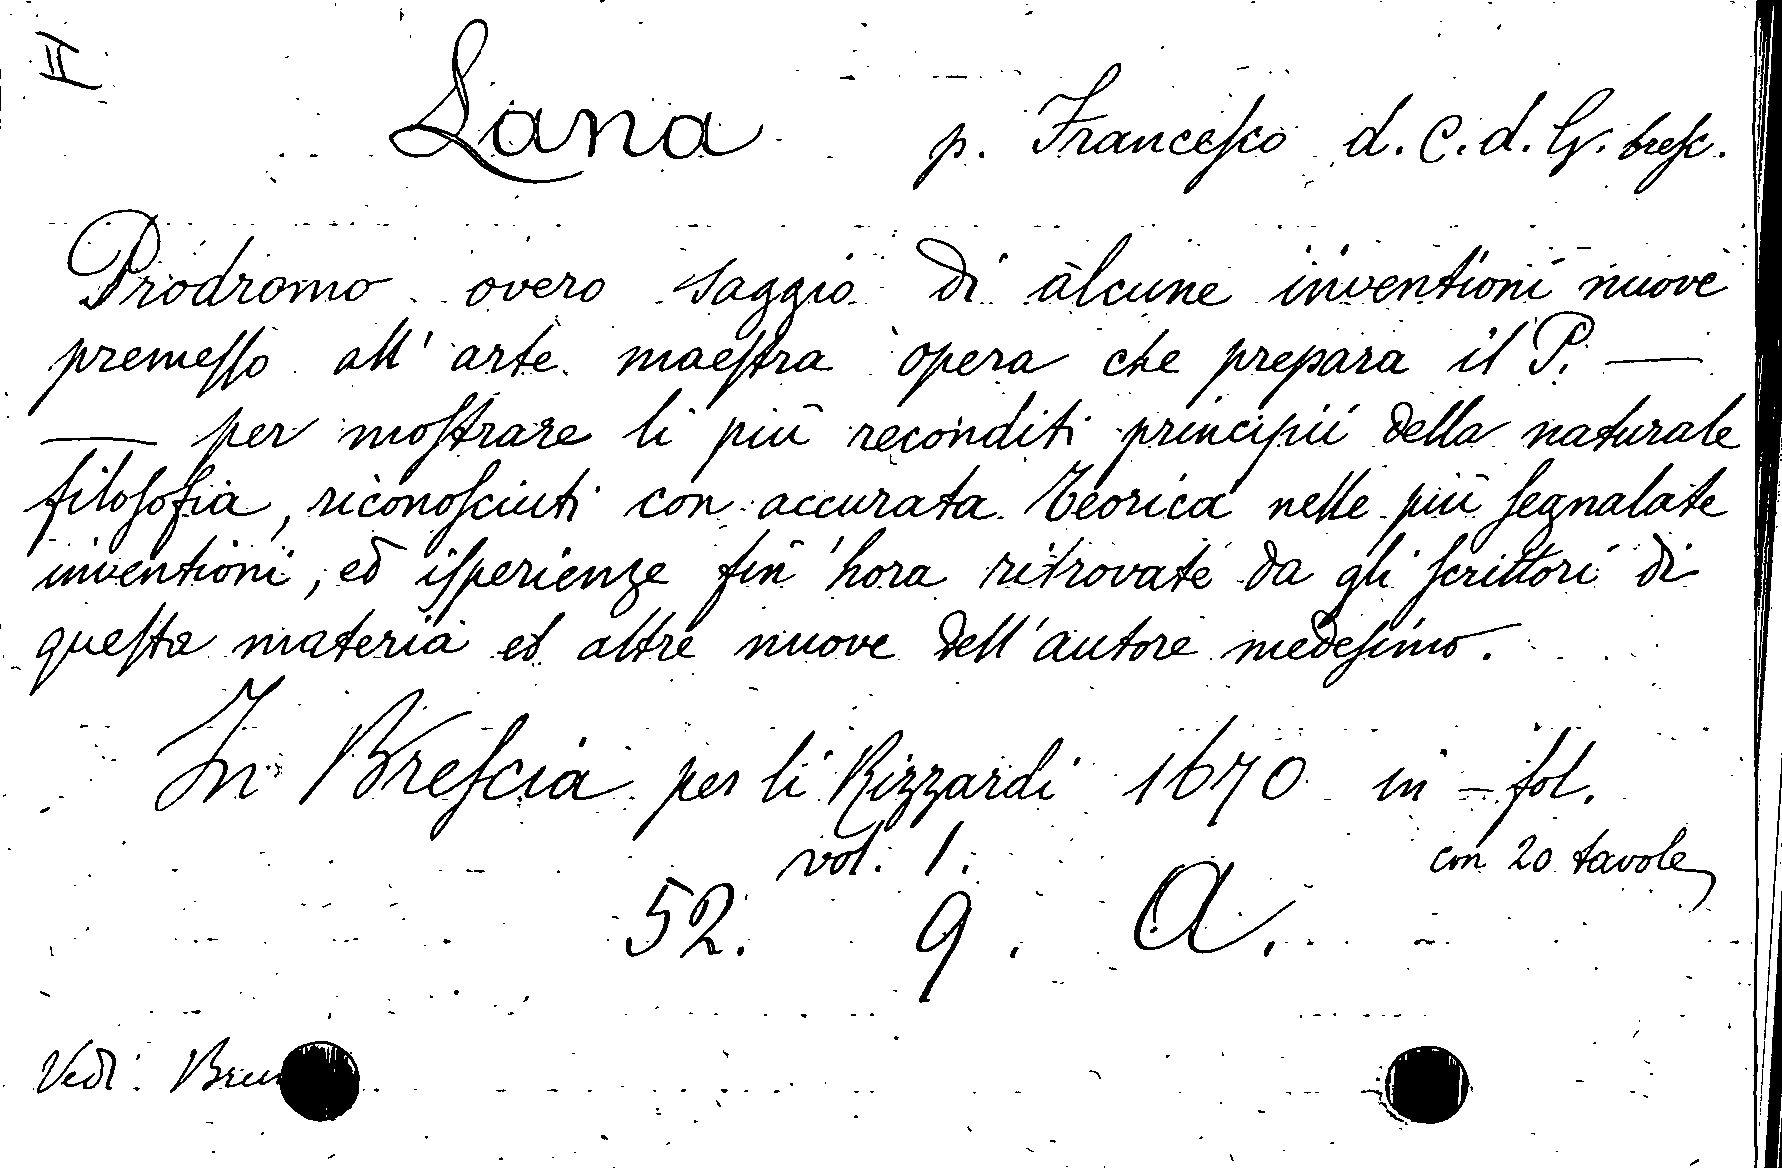 II
Lana p. Francesco d. C. d. G. bresc.
Prodromo overo saggio di alcune inventioni nuove
premesso all' arte maestra opera che prepara il P. —
— per mostrare li più reconditi principii della naturale
filosofia, riconosciuti con accurata teorica nelle più segnalate
inventioni, ed isperienze fin' hora ritrovate da gli scrittori di
questa materia et altre nuove dell' autore medesimo.
In Brescia per li Rizzardi 1670 in - fol.
vol. 1. con 20 tavole
52. 9. A.
Vedi: